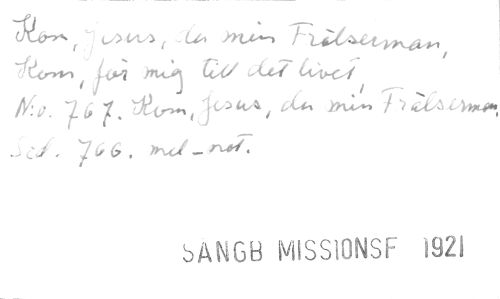 Kom, Jesus, du min Frälserman,
Kom, för mig till det livet,
N:o. 767. Kom, Jesus, du min Frälserman.
Sid. 766. mel-not.
SANGB MISSIONSF 1921